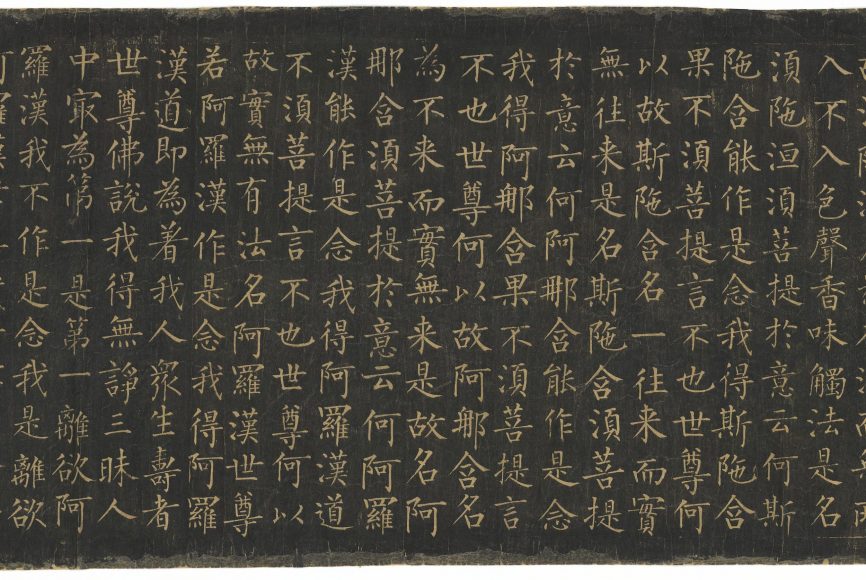 入不入色聲香味觸法是名
須陁洹須菩提於意云何斯
陁含能作是念我得斯陁含
果不須菩提言不也世尊何
以故斯陁含名一往来而實
無往来是名斯陁含須菩提
於意云何阿那含能作是念
我得阿那含果不須菩提言
不也世尊何以故阿那含名
為不来而實無来是故名阿
那含須菩提於意云何阿羅
漢能作是念我得阿羅漢道
不須菩提言不也世尊何以
故實無有法名阿羅漢世尊
若阿羅漢作是念我得阿羅
漢道即為著我人衆生壽者
世尊佛說我得無諍三昧人
中㝡為第一是第一離欲阿
羅漢我不作是念我是離欲